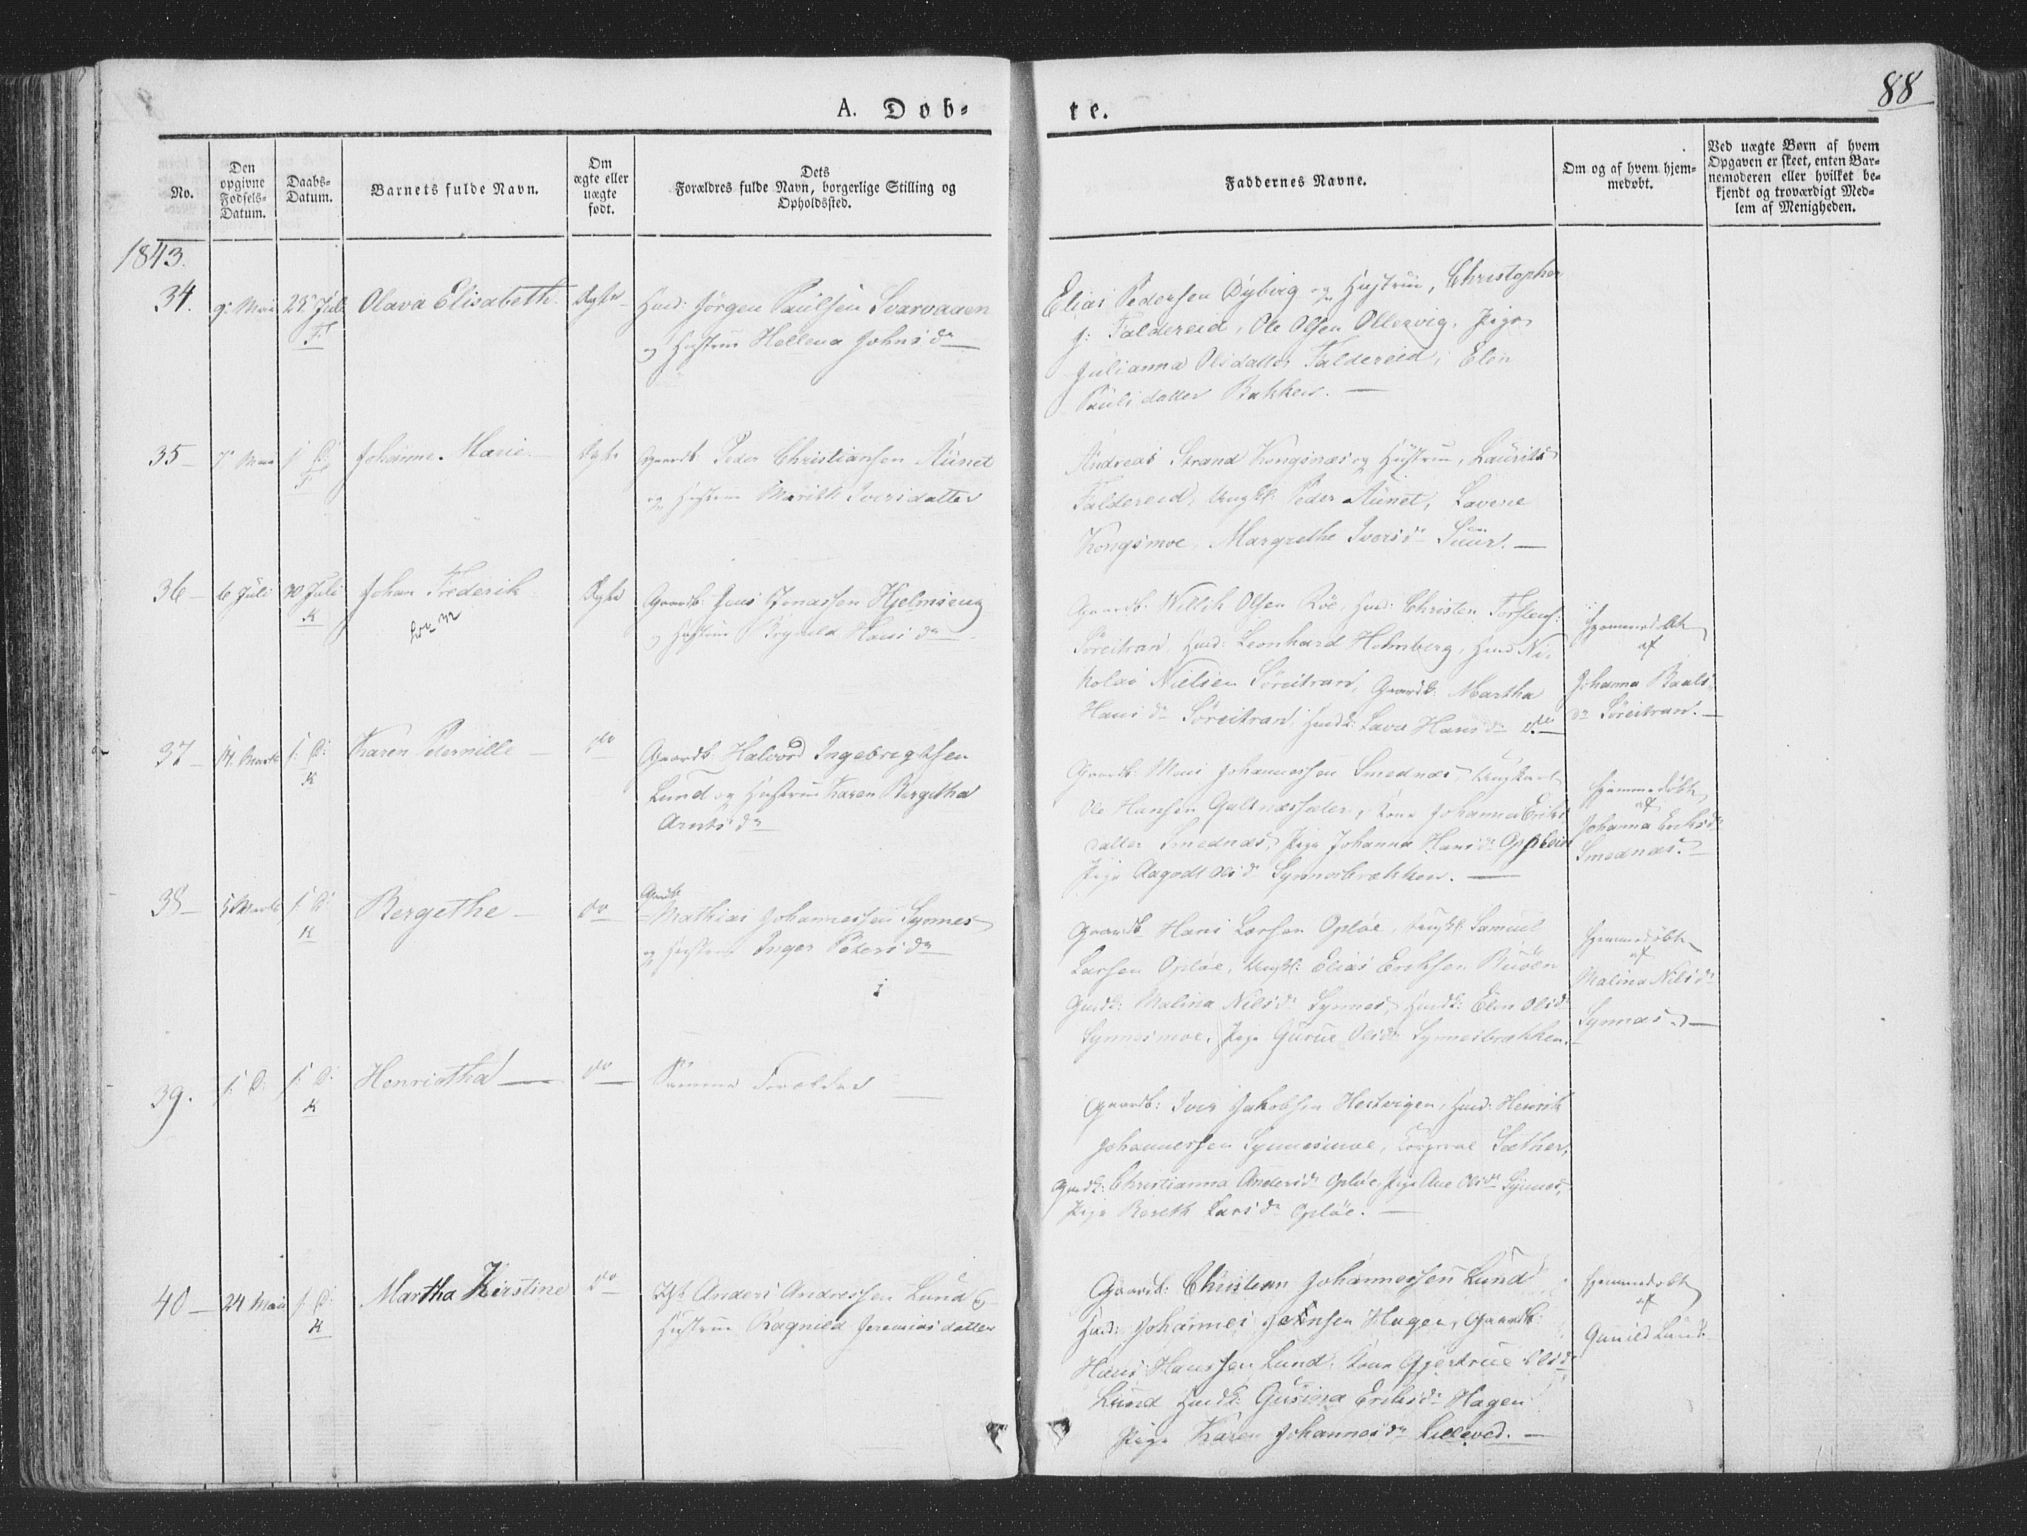 A. Døb-
te.
88
No.
Den opgivne Fødsels-Datum.
Daabs-Datum.
Barnets fulde Navn.
Om ægte eller uægte født.
Dets
Forældres fulde Navn, borgerlige Stilling og
Opholdssted.
Faddernes Navne.
Om og af hvem hjem-
medøbt.
Ved uægte Børn af hvem
Opgaven er skeet, enten Bar-
nemoderen eller hvilket be-
kjendt og troværdigt Med-
lem af Menigheden.
1843.
34. 9 Mai Juli Olava Elisabeth Ægte Huusm: Jørgen Paulsen Svarvaaen
F
og Hustrue Hellena Johnsdr
Elias Pedersen Dybvig og Hustrue, Christopher
J: Foldereid, Ole Olsen Ollervig, Pige
Julianna Olsdatter Foldereid, Elen
Paulsdatter Bakken. —
35 – Johanne Marie Ægte Gaardb: Peder Christiansen Aunet
F
og Hustrue Marith Iversdatter
Andreas Strand Kongsmoe og Hustrue, Laurits
Foldereid, Ungk: Peder Aunet, Lovene
Kongsmoe, Margrethe Iversdr —
36 – 6 Juli 30 Juli Johan Frederik Ægte Gaardb: Jens Jonassen Hjelmseng
K
og Hustrue Hansdr
Gaardb: Willik Olsen Røe, Huusm: Christen Torstens:
Søreitran, Huusm: Leonhard Holmberg, Huusm: Ni-
kolai Nielsen Søreitran, Gaardk: Martha
Hansdr Søreitran, Huusk: Lava Hansdr do
Hjemmedøbt
af
Johanna
dr Søreitran. —
37 – 14 Marts s: D: Karen Pernille do Gaardb: Halvord Ingebrigtsen
K
Lund og Hustrue Karen Bergitha
Arntsdr
Gaardb: Johannessen Smednæs, Ungkarl
Ole Hansen Galtnæssæter, Kone Johanna Eriks
datter Smednæs, Pige Johanna Hansdr
Pige Aagodt Olsdr Synnesbrækken. —
Hjemmedøbt
af
Johanna Eriksdr
Smednæs. —
38 – 5 Marts s: D: Bergethe – do Gaardb:
K
Mathias Johannessen Synnes
og Hustrue Inger Petersdr
Gaardb: Hans Larsen Opløe, Ungk: Samuel
Larsen Opløe, Ungk: Elias Eriksen
Gaardk: Malina Nilsdr Synnes, Huusk: Elen Olsdr
Synnesmoe, Pige Gurue Olsdr Synnesbrækken.
Hjemmedøbt
af
Malina Nilsdr
Synnæs. —
39. s: D: s: D: Henriatha — do Samme Forældre —
K
Gaardb: Iver Jakobsen Hestvigen, Huusm: Henrik
Johannessen Synnesmoe, Sæther,
Gaardk: Christianna Andersdr Opløe, Pige Ane Olsdr Synnes,
Pige Bereth Larsdr Opløe. —
40 – 24 Mai s: D: Martha Kirstine do Anders Andreassen Lund &
K
Hustrue Ragnild Jeremiasdatter
Gaardb: Christian Johannessen Lund
Huusm: Johannes Jensen Hagen, Gaardb:
Hans Hanssen Lund, Kone Gjertrue Olsdr
Lund Huusk: Gusina Eriksdr Hagen
Pige Karen Johannesdr —
Hjemmedøbt
af
Gunild Lund